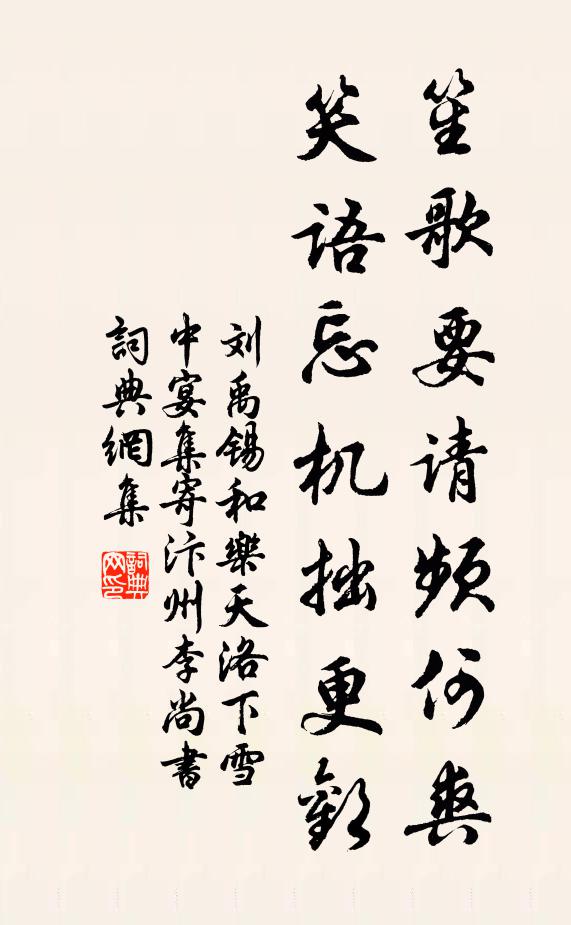 笙歌要请频何爽
笑語忘机拙更歡
刘禹锡和樂天洛下雪
中宴集寄汴州李尚書
詞典網集
詞典网印